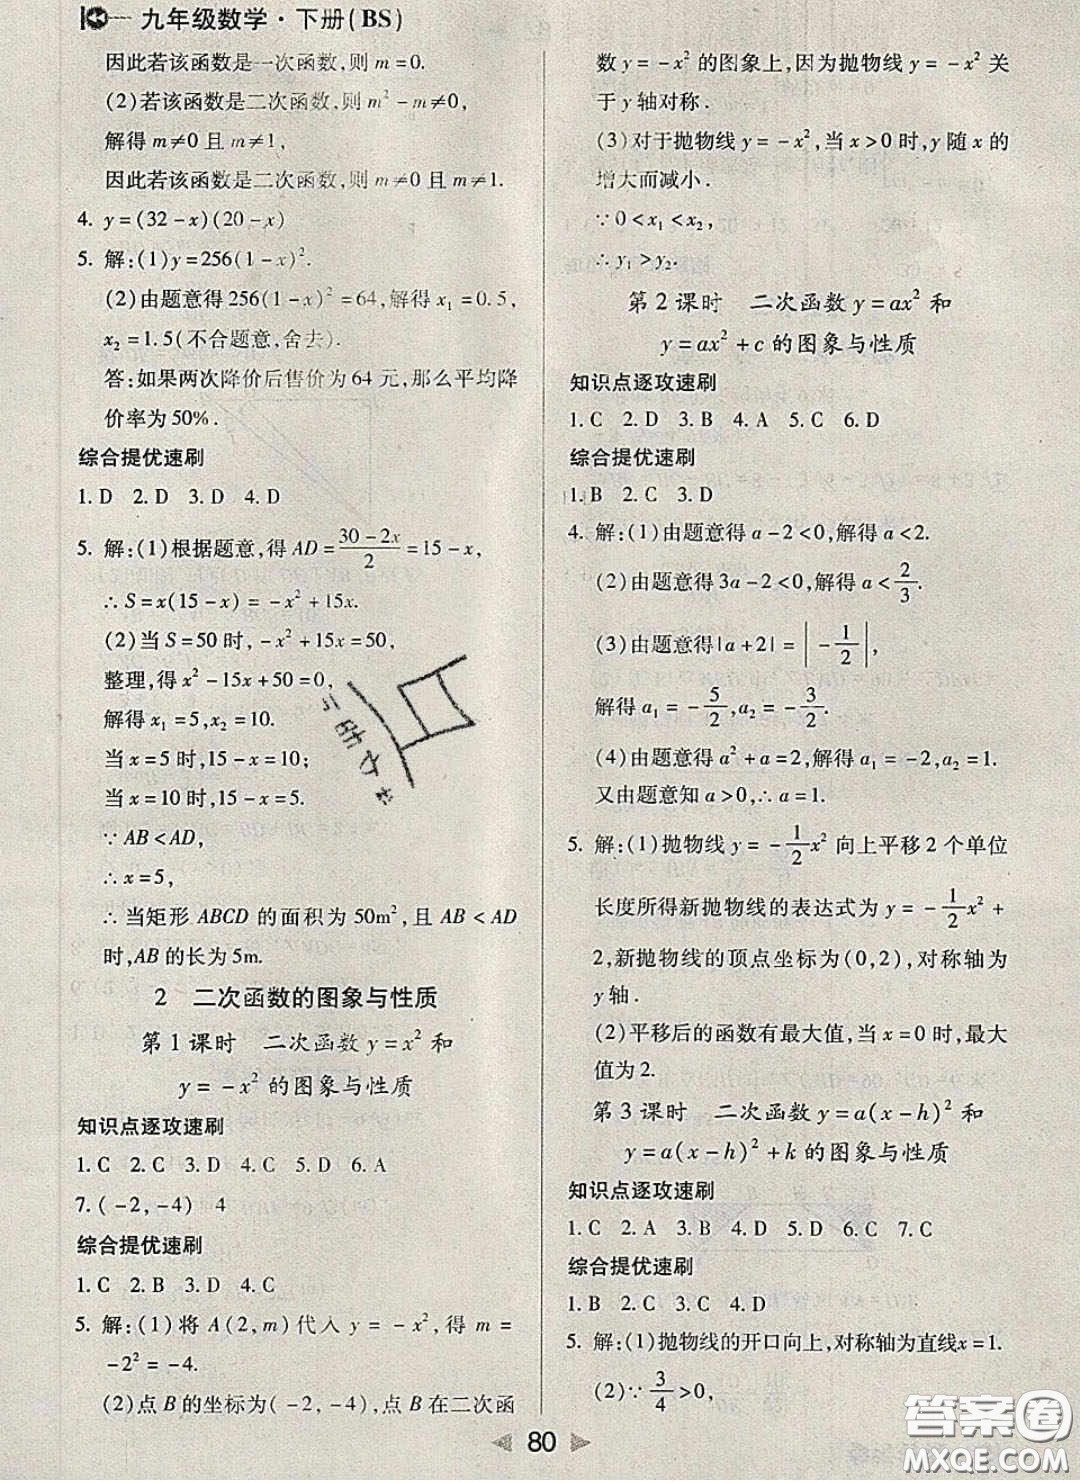 九年级数学·下册(BS)
因此若该函数是一次函数,则 m=0.
(2)若该函数是二次函数,则 m²-m≠0,
解得 m≠0 且 m≠1,
因此若该函数是二次函数,则 m≠0 且 m≠1.
4. y=(32-x)(20-x)
5. 解:(1)y=256(1-x)².
(2)由题意得 256(1-x)²=64,解得 x₁=0.5,
x₂=1.5(不合题意,舍去).
答:如果两次降价后售价为 64 元,那么平均降
价率为 50%.
综合提优速刷
1. D 2. D 3. D 4. D
5. 解:(1)根据题意,得 AD=(30-2x)/2=15-x,
∴S=x(15-x)=-x²+15x.
(2)当 S=50 时,-x²+15x=50,
整理,得 x²-15x+50=0,
解得 x₁=5,x₂=10.
当 x=5 时,15-x=10;
当 x=10 时,15-x=5.
∵AB<AD,
∴x=5,
∴当矩形 ABCD 的面积为 50m²,且 AB<AD
时,AB 的长为 5m.
2 二次函数的图象与性质
第 1 课时 二次函数 y=x² 和
y=-x² 的图象与性质
知识点逐攻速刷
1. C 2. C 3. D 4. C 5. D 6. A
7. (-2,-4) 4
综合提优速刷
1. C 2. B 3. D 4. C
5. 解:(1)将 A(2,m)代入 y=-x²,得 m=
-2²=-4.
(2)点 B 的坐标为(-2,-4),点 B 在二次函
数 y=-x² 的图象上,因为抛物线 y=-x² 关
于 y 轴对称.
(3)对于抛物线 y=-x²,当 x>0 时,y 随 x 的
增大而减小.
∵0<x₁<x₂,
∴y₁>y₂.
第 2 课时 二次函数 y=ax² 和
y=ax²+c 的图象与性质
知识点逐攻速刷
1. C 2. D 3. B 4. A 5. C 6. D
综合提优速刷
1. B 2. C 3. D
4. 解:(1)由题意得 a-2<0,解得 a<2.
(2)由题意得 3a-2<0,解得 a<2/3.
(3)由题意得|a+2|=|-1/2|,
解得 a₁=-5/2,a₂=-3/2.
(4)由题意得 a²+a=2,解得 a₁=-2,a₂=1.
又由题意知 a>0,∴a=1.
5. 解:(1)抛物线 y=-1/2x² 向上平移 2 个单位
长度所得新抛物线的表达式为 y=-1/2x²+
2,新抛物线的顶点坐标为(0,2),对称轴为
y 轴.
(2)平移后的函数有最大值,当 x=0 时,最大
值为 2.
第 3 课时 二次函数 y=a(x-h)² 和
y=a(x-h)²+k 的图象与性质
知识点逐攻速刷
1. C 2. A 3. B 4. D 5. D 6. C 7. C
综合提优速刷
1. B 2. C 3. C 4. D
5. 解:(1)抛物线的开口向上,对称轴为直线x=1.
(2)∵3/4>0,
80
答案圈
MXQE.COM